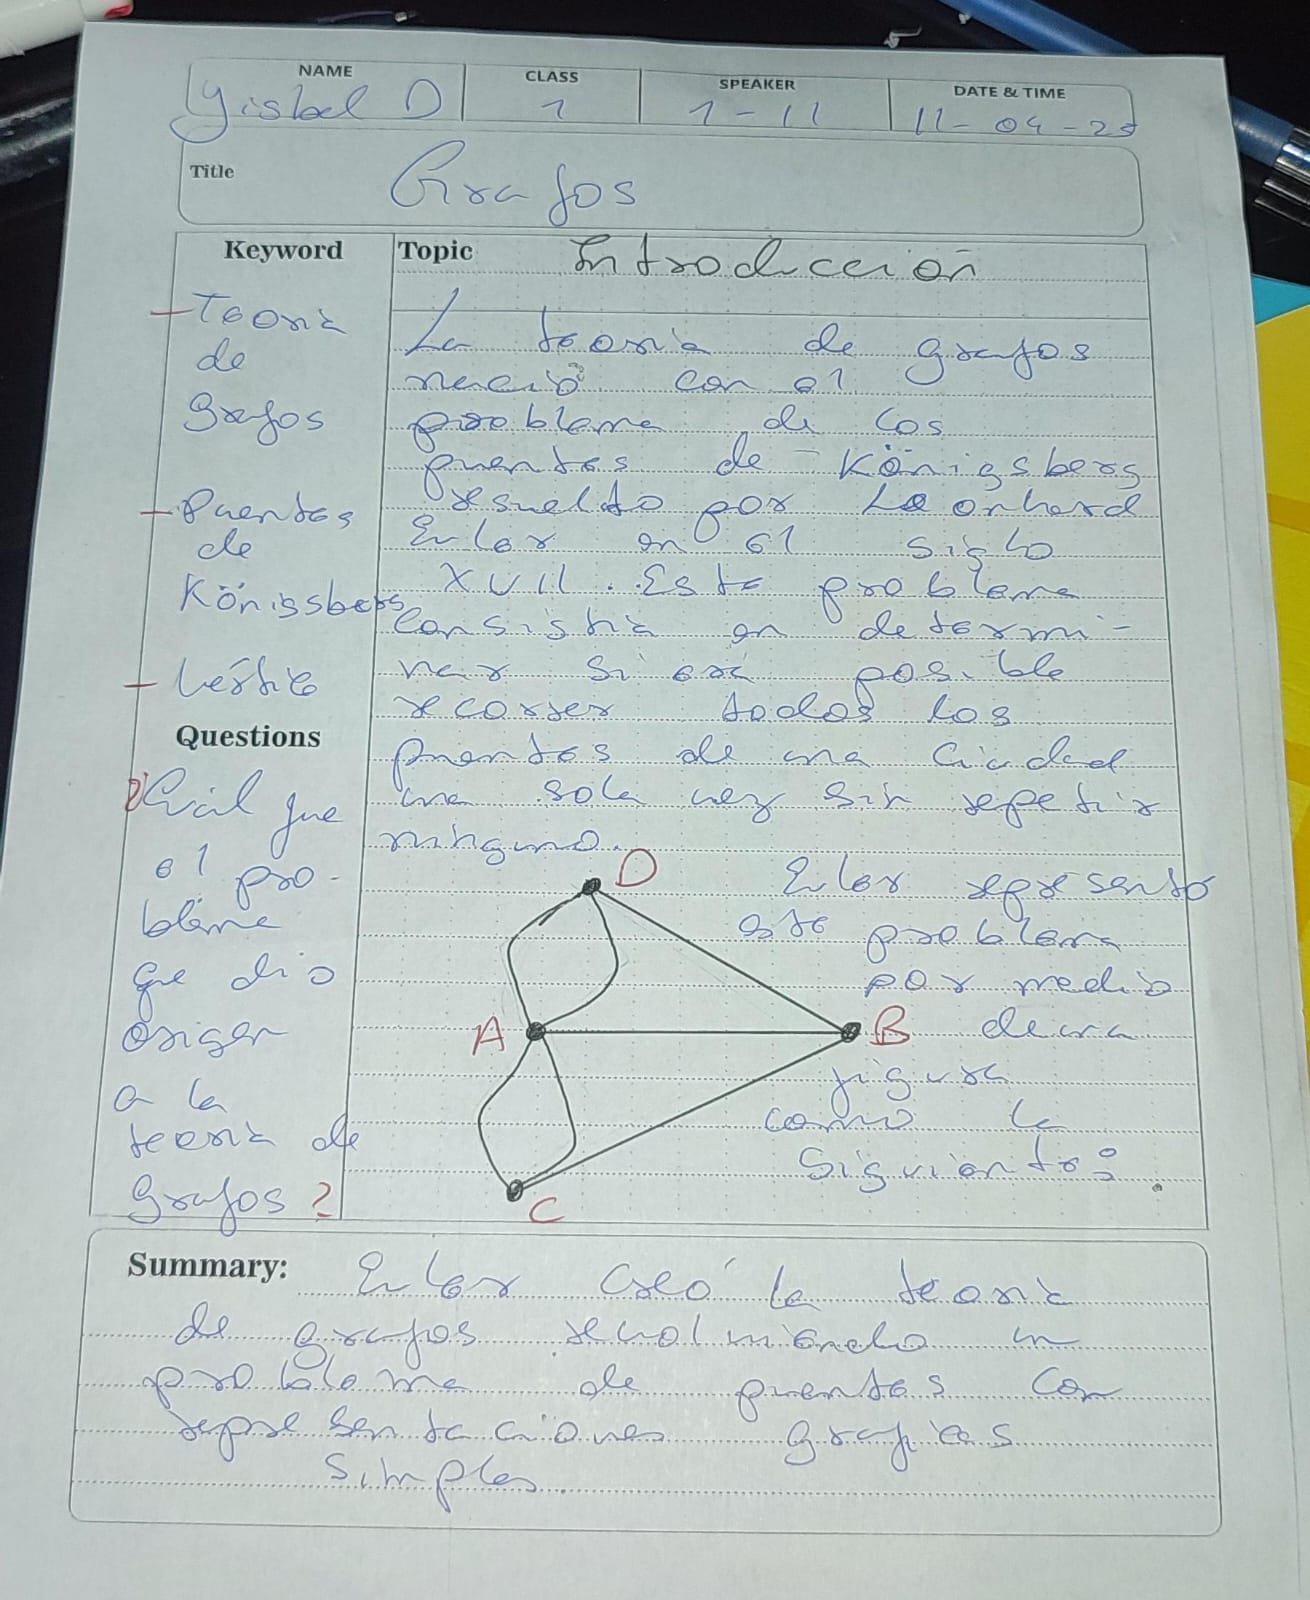 NAME
CLASS
SPEAKER
DATE & TIME
Yisbel D
1
1-11
11-04-25
Title
Grafos
Keyword
Teoría
de
grafos
Puentes
de
Königsberg
Vértice
Questions
¿Cuál fue
el pro-
blema
que dio
origen
a la
teoría de
grafos?
Topic
Introducción
La teoría de grafos
nació con el
problema de los
puentes de Königsberg
resuelto por Leonhard
Euler en el siglo
XVII. Este problema
consistía en determi-
nar si era posible
recorrer todos los
puentes de una ciudad
una sola vez sin repetir
ninguno.
D
A
B
C
Euler representó
este problema
por medio
de una
figura
como la
siguiente:
Summary:
Euler creó la teoría
de grafos resolviendo un
problema de puentes con
representaciones graficas
simples.